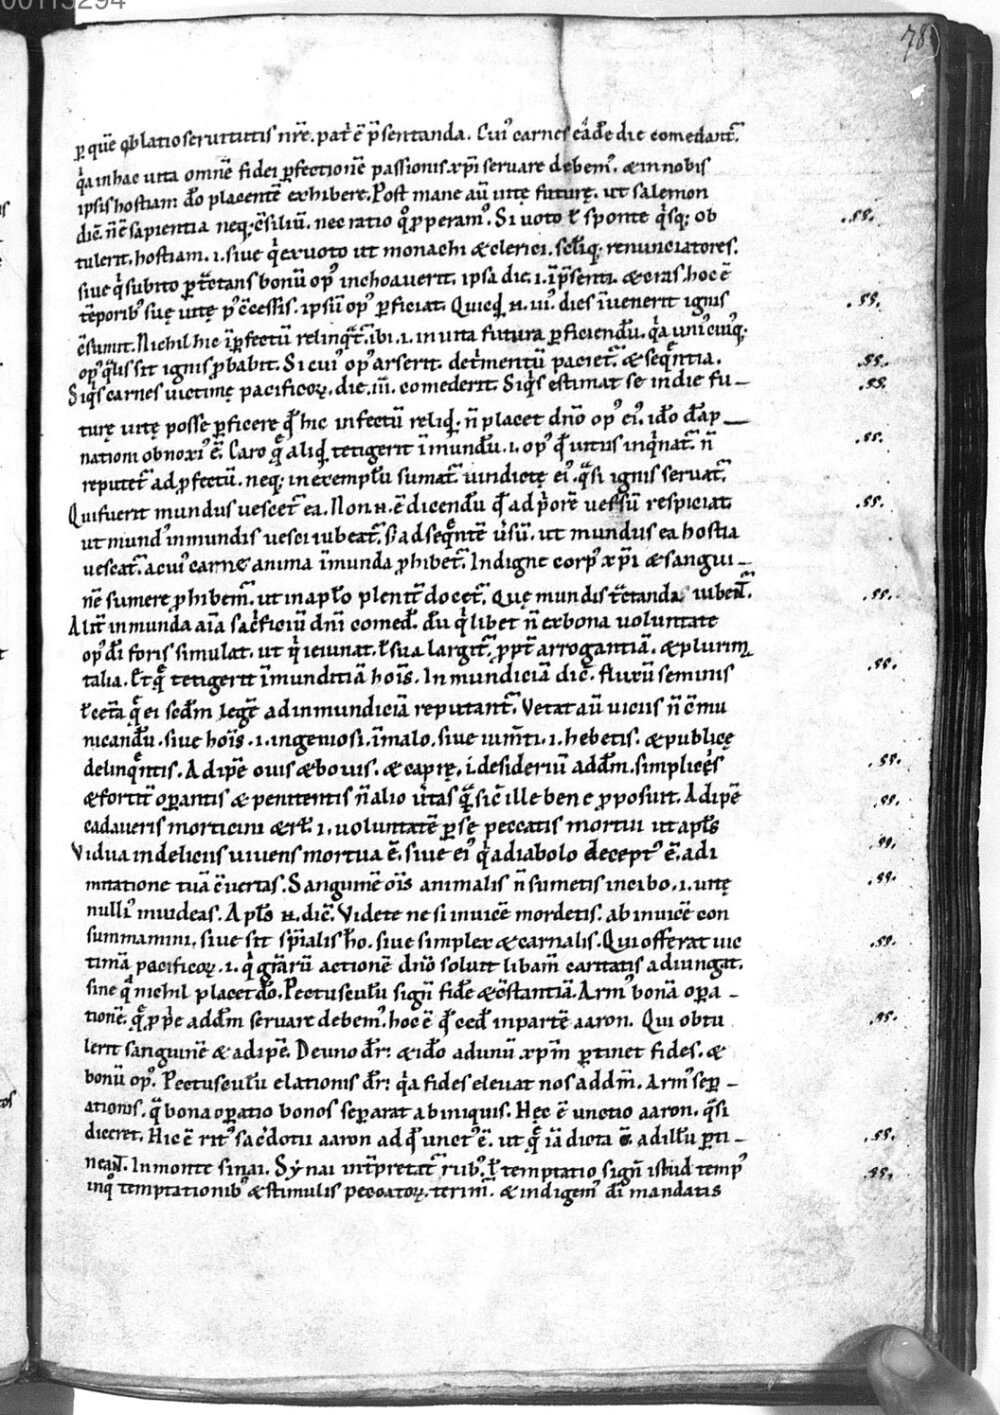 00115294
78
ꝑ quē oblatio seruitutis nr̄e. patͥ ē p̄sentanda. Cuiꝰ carnes eādē die comedant᷑.
qͥa in hac uita omnē fidei ꝑfectionē passionis xp̄i seruare debemꝰ. & in nobis
ipsis hostiam dō placentē exhibere. Post mane aū uitę futurę. ut salemon
dic̄. n̄ ē sapientia neq; c̄siliū. nec ratio qͦ ꝓperamꝰ. Si uoto ł sponte qͥsq; ob
tulerit. hostiam. .i. siue qͥ ex uoto ut monachi & clerici. sc̄liq; renunciatores.
siue qͥ subito ꝑt̄ctans bonū opꝰ inchoauerit. ipsa die. .i. ip̄senti. & cras. hoc ē
tēporibꝰ suę uitę pꝰ c̄cessis. ipsū opꝰ ꝑficiat. Quicqͥd n̄. iiiꝰ. dies īuenerit ignis
c̄sumit. Nichil hic īꝑfectū relinqͣt᷑. ibi .i. in uita futura ꝑficiendū. qͥa uniꝰcuiꝰq;
opꝰ qͣlis sit ignis ꝓbabit. Si cuiꝰ opꝰ arserit. detͥmentū paciet᷑. & seqͣntia.
Siqͥs carnes uictimę pacificoꝝ. die .iii. comederit. Siqͥs estimat se in die fu-
turę uitę posse ꝑficere qd̄ hic infectū reliqͥt. n̄ placet dn̄o opꝰ eiꝰ. idō dāp
nationi obnoxiꝰ ē. Caro qͣ aliqͥd tetigerit īmundū. .i. opꝰ qd̄ uitiis inqͥnat᷑. n̄
reputet᷑ ad ꝓfectū. neq; in exemplū sumat᷑. uindictę eiꝰ. qͣsi ignis seruat᷑.
Qui fuerit mundus uescet᷑ ea. Non n̄. ē dicendū qd̄ ad pͥorē uersū respiciat
ut mundꝰ inmundis uesci iubeat᷑. s; ad seqͣntē u̓sū. ut mundus ea hostia
uescat᷑. a cuiꝰ carne anima īmunda ꝓhibet᷑. Indigne corpꝰ xp̄i & sangui-
nē sumere ꝓhibem᷑. ut in aplō plenit᷑ docet᷑. Quę mundis t̄ctanda iubent᷑.
Alit̄ inmunda aīa sacͥficiū dn̄i comed̄. dū qͥlibet n̄ ex bona uoluntate
opꝰ dī foris simulat. ut qͥ ieiunat. ł sua largit᷑. ꝓpt̄ arrogantiā. & plurim̄
talia. Et qͣ tetigerit īmunditiā hoīs. Inmundiciā dic̄. fluxū seminis
ł ceta qͣ ei scd̄m legē ad inmundiciā reputant᷑. Vetat aū uiciis n̄ c̄mu
nicandū. siue hoīs .i. ingeniosi. ī malo. siue iumti. .i. hebetis. & publicę
delinqͣntis. Adipē ouis & bouis. & caprę. .i. desideriū ad dm̄. simplicis
& fortit̄ oꝑantis & penitentis n̄ alio u̓tas qͣ sic̄ ille bene ꝓposuit. Adipē
cadaueris morticini & rł. .i. uoluntatē ꝑ se peccatis mortui ut apls̄
Vidua in deliciis uiuens mortua ē. siue eiꝰ qͥ a diabolo deceptꝰ ē. ad i
mitatione tuā c̄uertas. Sanguinē oīs animalis n̄ sumetis in cibo. .i. uitę
nulliꝰ inuideas. Apls̄ n̄. dic̄. Videte ne si inuicē mordetis. ab inuicē con
summamini. siue sit sp̄ialis hō. siue simplex & carnalis. Qui offerat uic
timā pacificoꝝ. .i. qͥ grārū actionē dn̄o soluit libam̄ caritatis adiungat.
sine qͣ nichil placet dō. Pectusculū signū fidē & c̄stantiā. Armꝰ bonā oꝑa-
tionē. qͣ ꝓpͥe ad dm̄ seruare debemꝰ. hoc ē qd̄ ced̄ in partē aaron. Qui obtu
lerit sanguinē & adipē. De uno dr̄: & idō ad unū xpm̄ ꝑtinet fides. &
bonū opꝰ. Pectusculū elationis dr̄: qͥa fides eleuat nos ad dm̄. Armꝰ seꝑ-
ationis. qͣ bona oꝑatio bonos seꝑarat ab iniquis. Hęc ē unctio aaron. qͣsi
diceret. Hic ē ritꝰ sac̓dotii aaron ad qd̄ unctꝰ ē. ut qͣ iā dicta s̄ ad illū ꝑti-
neant. In monte sinai. Synai int̓pretat᷑ rubꝰ. ł temptatio signū istud tempꝰ
in qͦ temptationibꝰ & stimulis peccatoꝝ. terimꝰ. & indigemꝰ dī mandatis